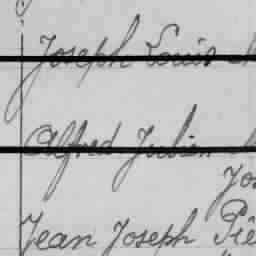 Joseph Louis
Alfred Julien
Jos
Jean Joseph Piè